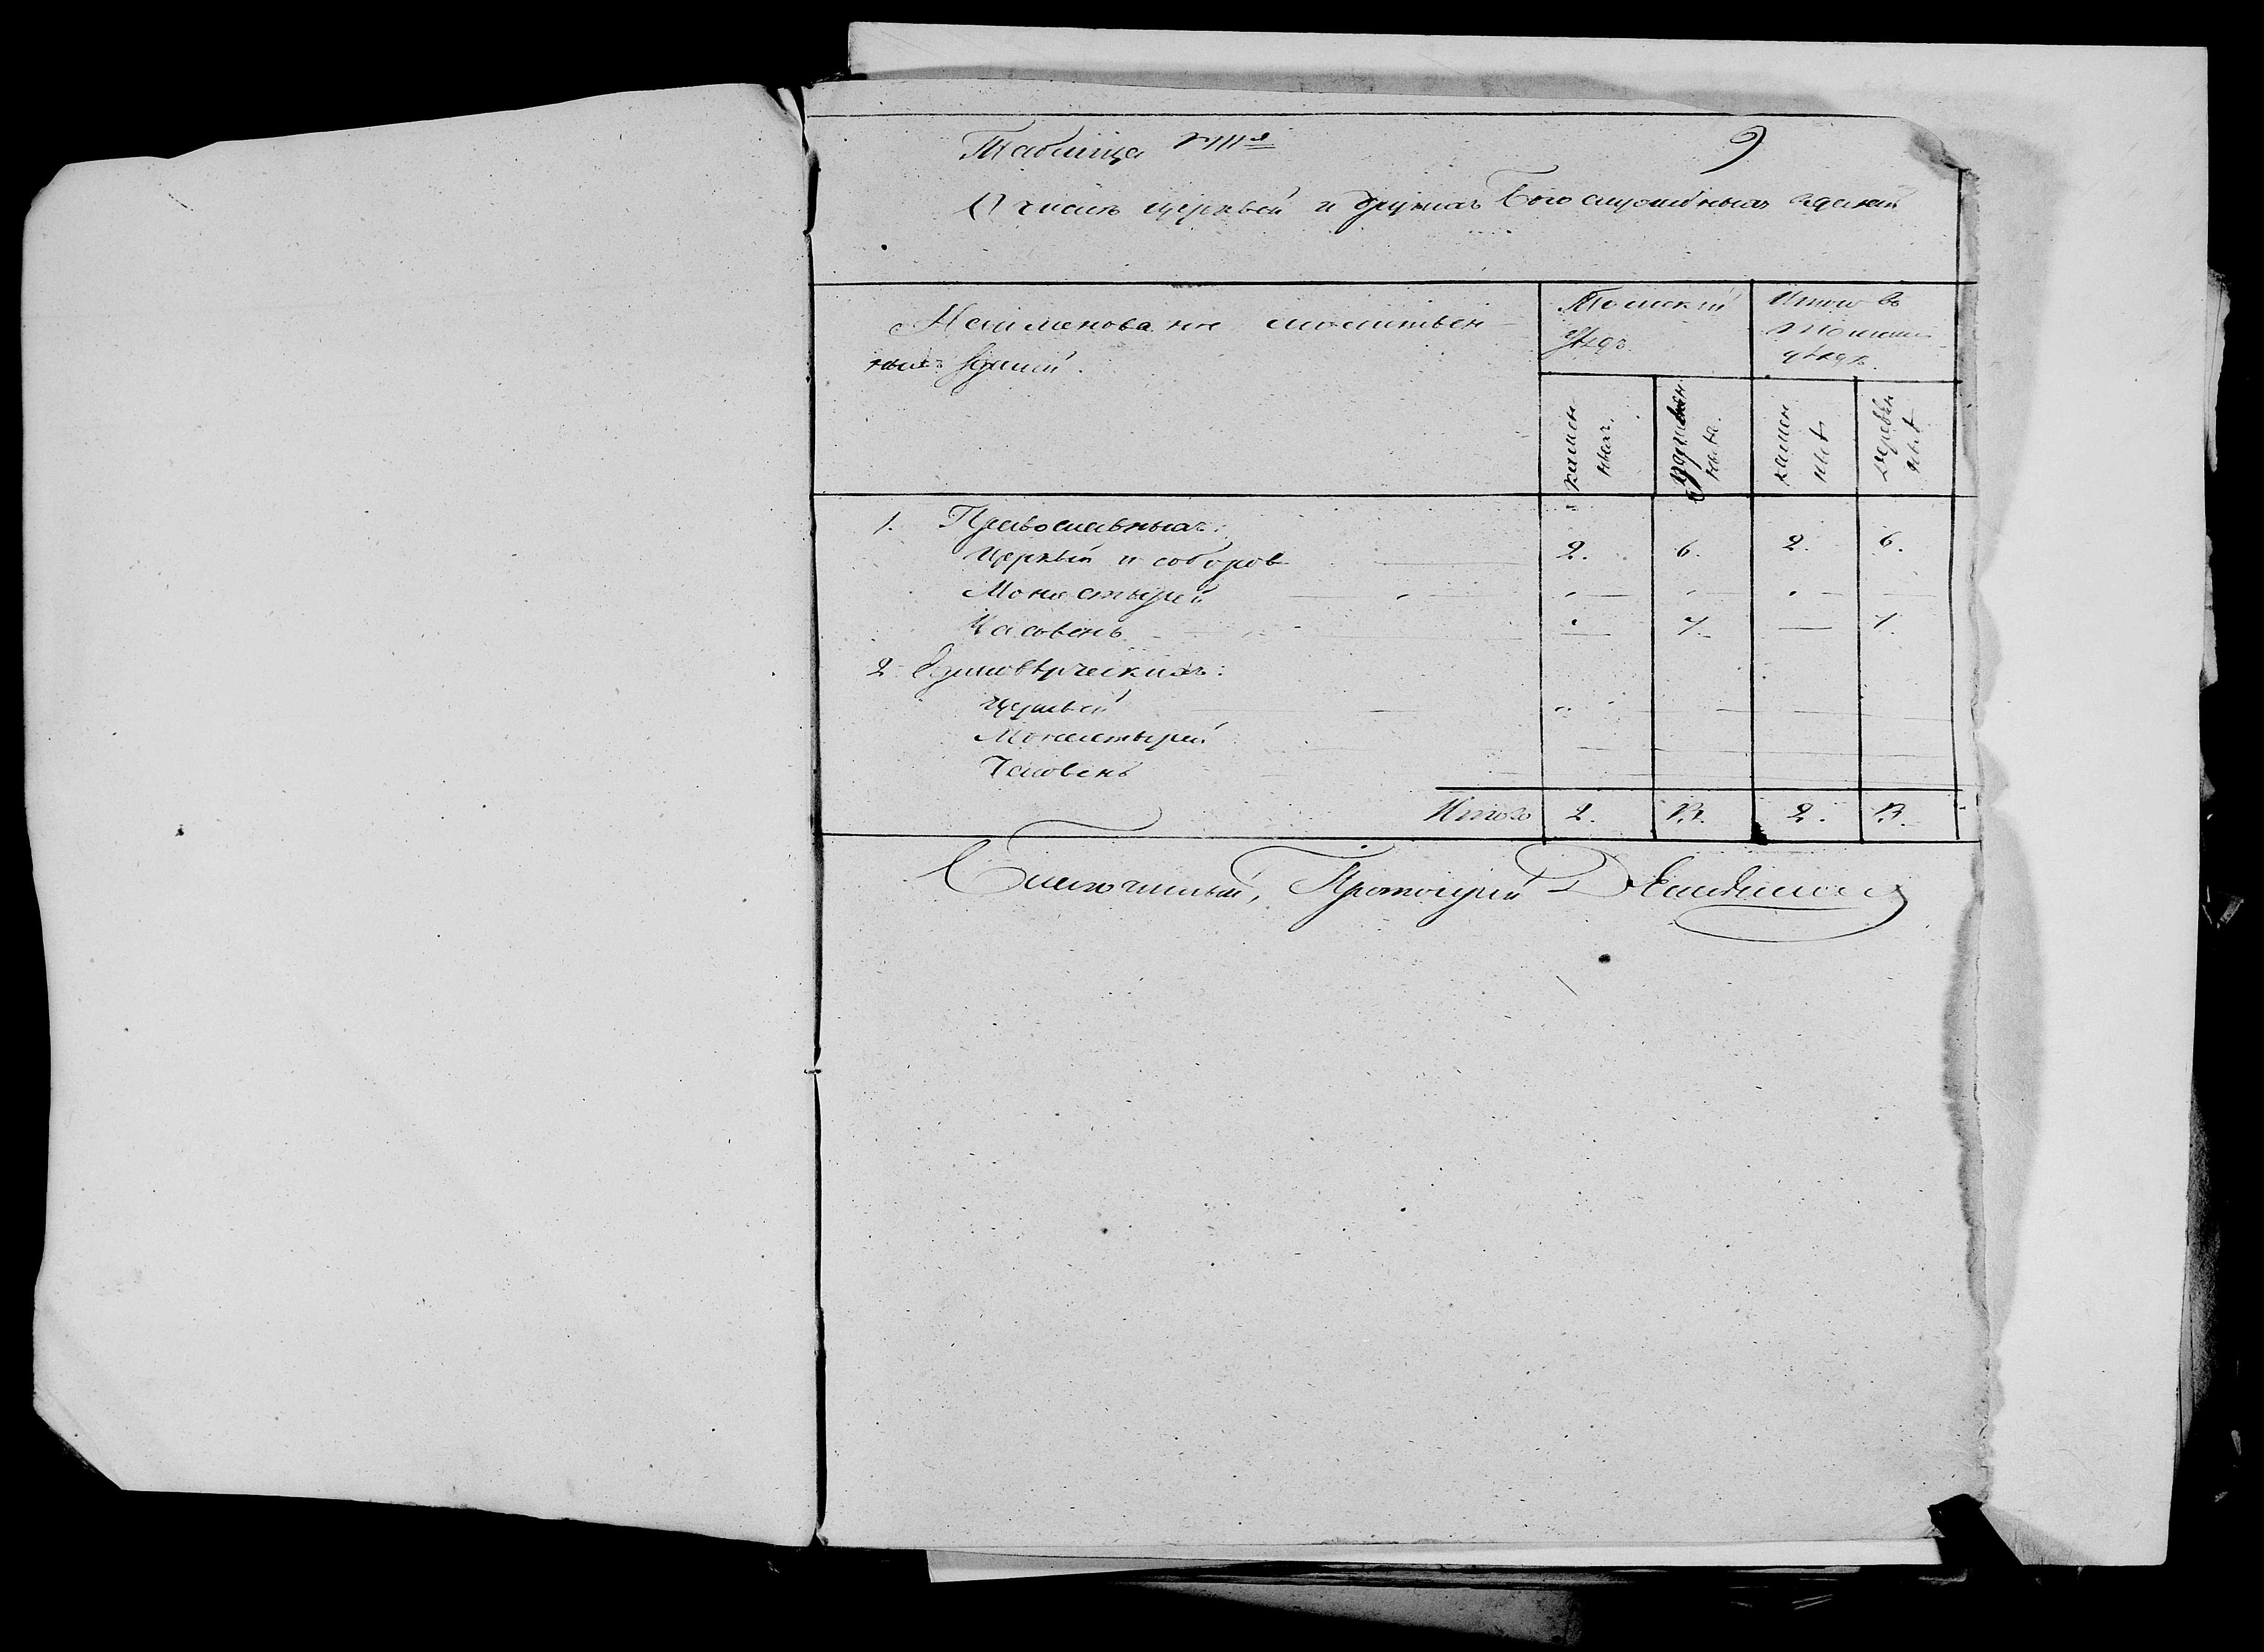 Таблица VIII-я
9
О числѣ церквей и другихъ Богослужебныхъ зданій
Наименованіе молитвен-
ныхъ зданій.
Томскій
уѣздъ.
Итого въ
Томскомъ
уѣздѣ.
камен
ныхъ.
деревян
ныхъ.
камен
ныхъ
деревян
ныхъ
1. Православныхъ:
Церквей и соборовъ — 2. 6. 2. 6.
Монастырей — — — — —
Часовень — — 7. — 7.
2 Единовѣрческихъ:
Церквей — — — — —
Монастырей — — — —
Часовень — — — —
Итого 2. 13. 2. 13.
Благочинный, Протоіерей